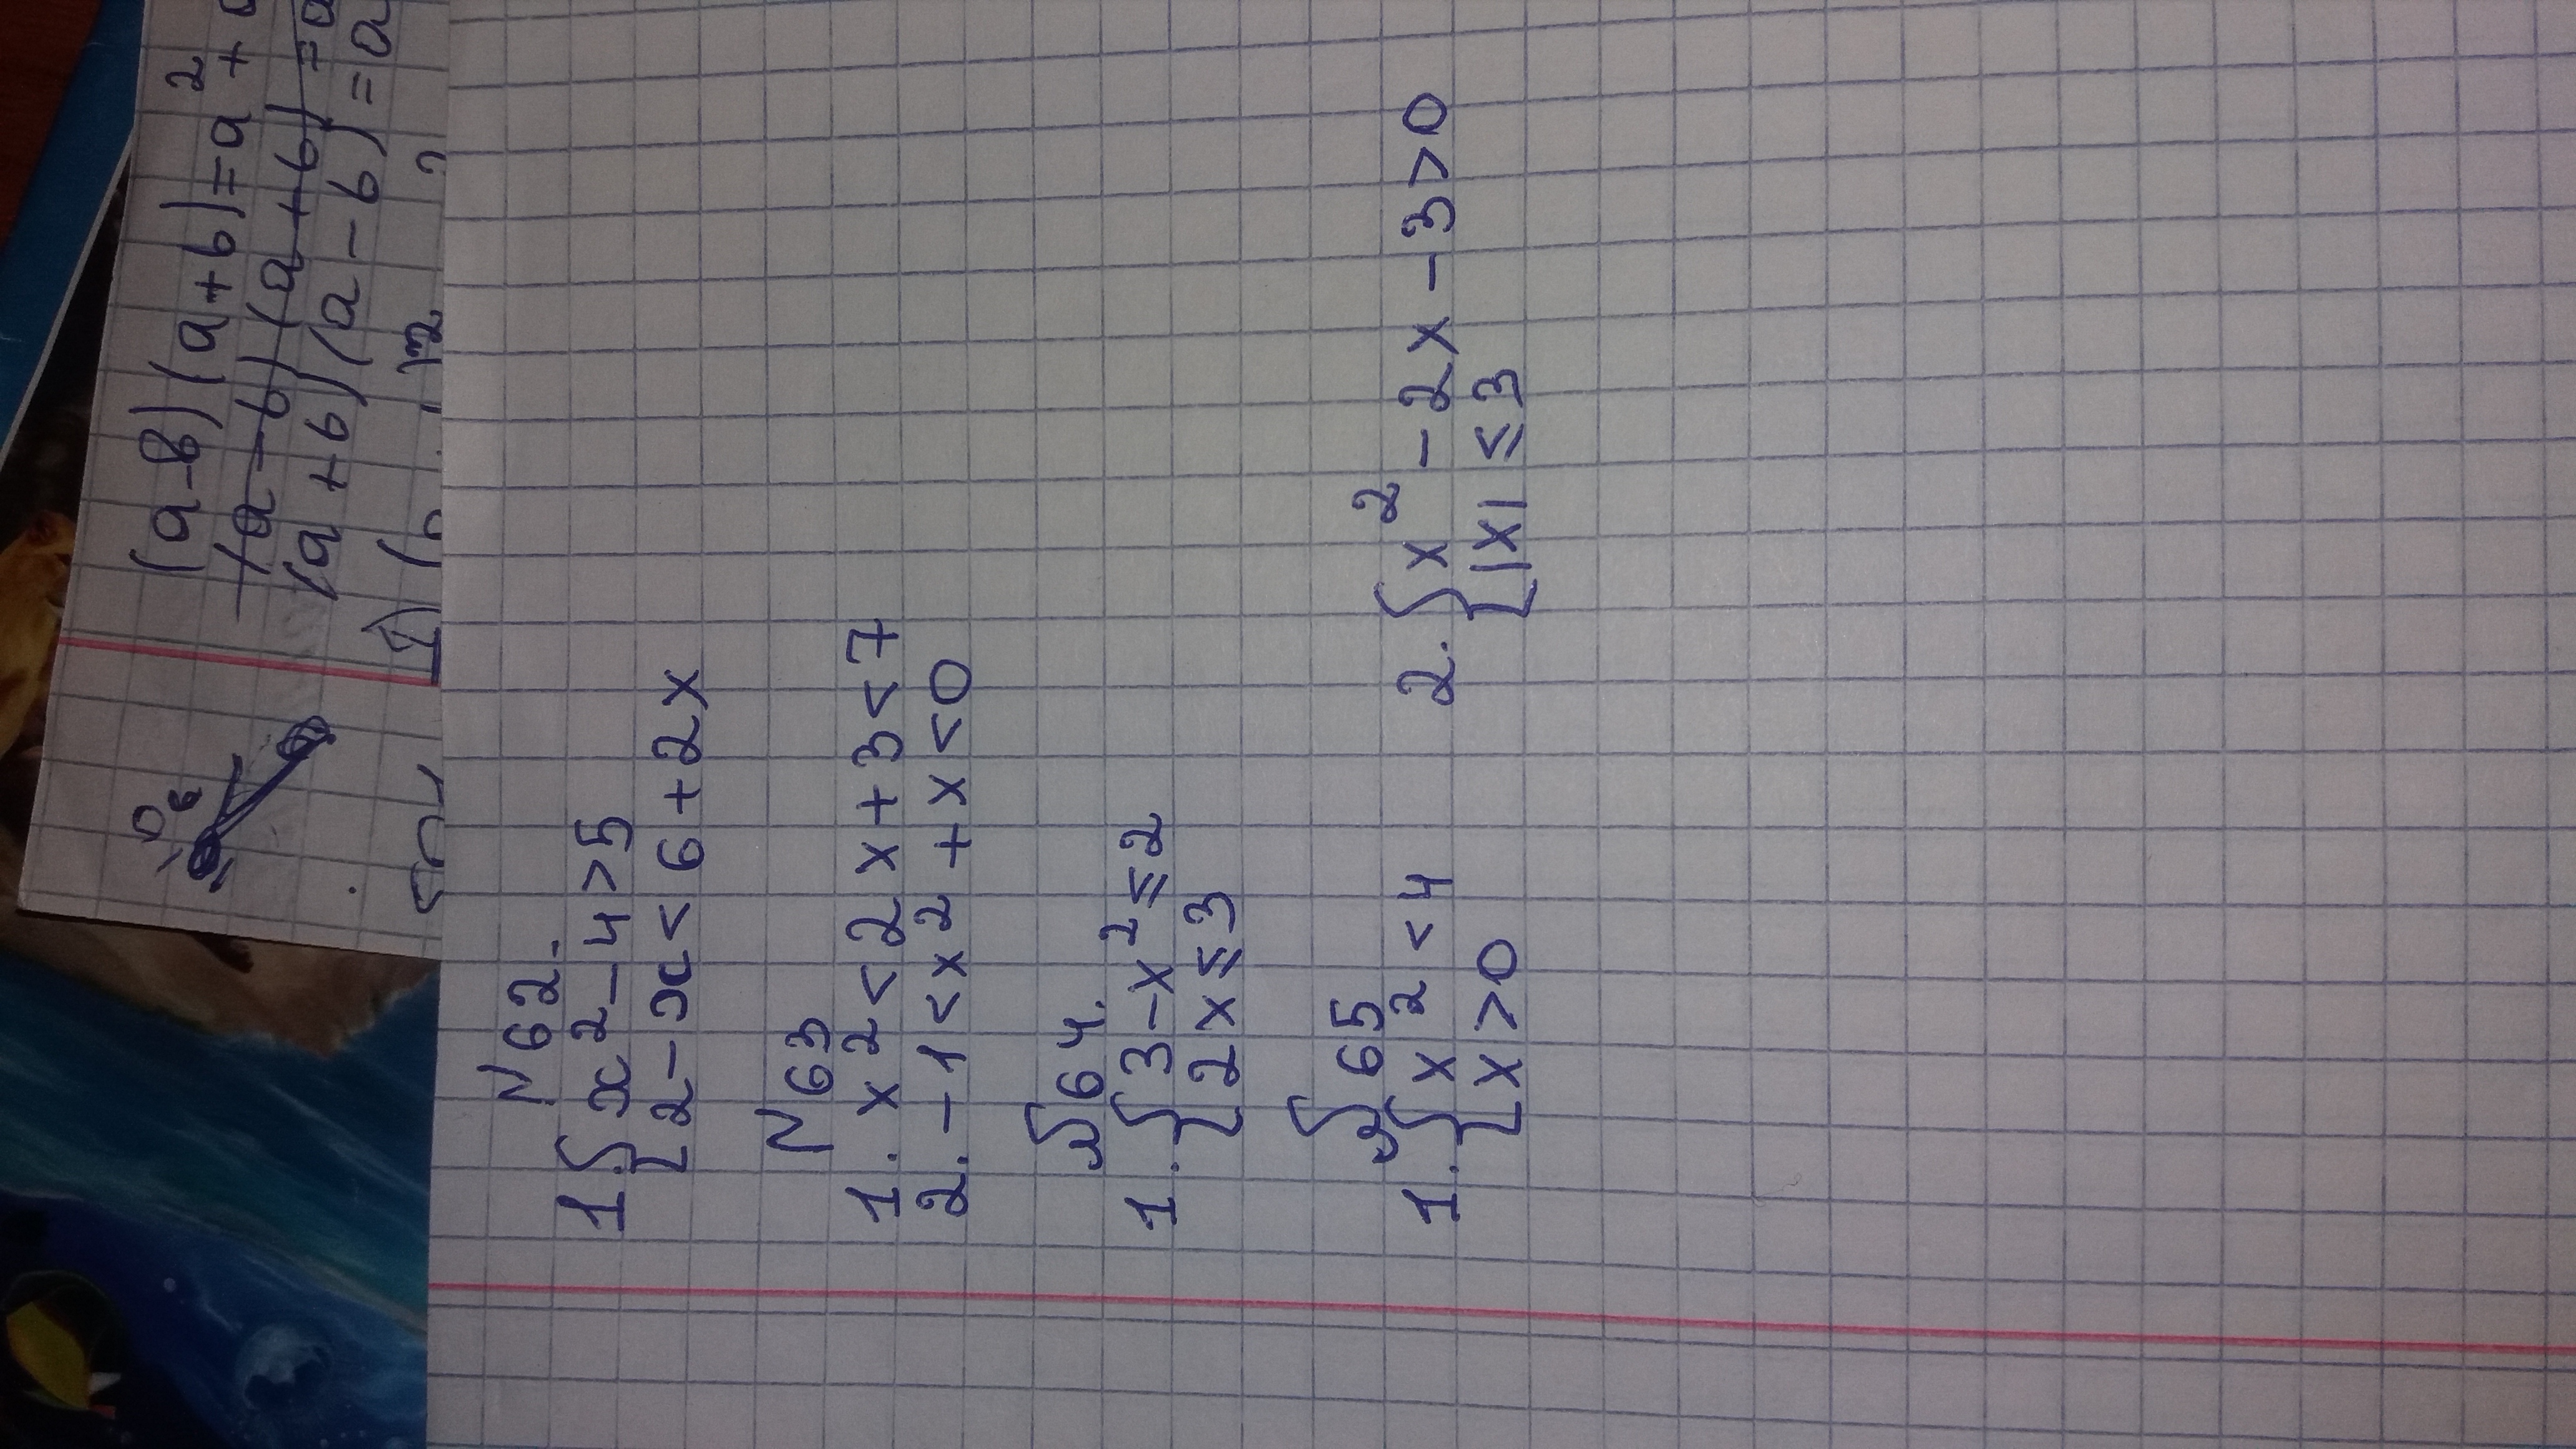 (a-в)(a+b)=a² +
(a-b)(a+b)=a
(a+b)(a-b)=a
N62.
1. { x²-4>5
{ 2-x<6+2x
N63
1. x²<2x+3<7
2. -1<x²+x<0
№64.
1. { 3-x²≤2
{ 2x≤3
№65
1. { x²<4
{ x>0
2. { x²-2x-3>0
{ |x|≤3